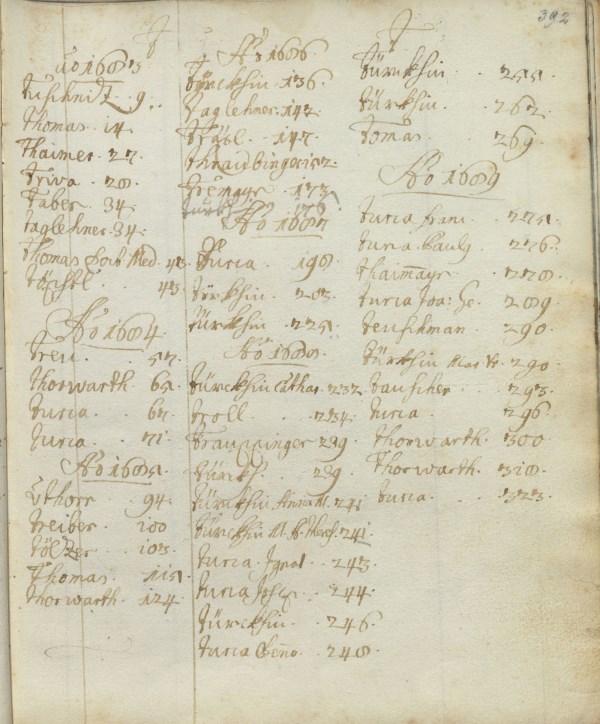 392
T
Ao 1683.
tuschnitz 9.
Thomas. 14.
Thaimer. 27.
triva. 28.
taber. 34.
taglehner. 34.
Thomas Doct Med. 43.
43.
Ao 1684.
treu. 57.
thorwarth. 65.
turia. 67.
turia. 71.
Ao 1685.
Ethorr 94.
treiber. 100
tölzer. 103.
Thomas. 115.
thorwarth. 124.
T Ao 1686.
türckhin. 136.
taglehner. 142.
tröbl. 147.
thnaidbinger 152.
tremayr. 173.
türckh 176
Ao 1687
turia. 198.
türckhin. 203.
türckhin. 225.
Ao 1688.
türckhin Cathar. 232.
troll. 234.
239
türckh. 239.
türckhin Anna M. 241
türckhin M. B. Theres. 241.
turia Ignat. 243.
turia Josep. 244.
türckhin. 246.
turia Benno. 248.
T
türckhin. 255.
türckhin. 262.
tomas. 269.
Ao 1689
turia Franc. 275.
turia Pauls. 276.
thaimayr. 278.
turia Joa: 289.
teuschman. 290.
türckhin Mar 290.
tauscher. 293.
turia. 296.
thorwarth. 300
Thorwarth. 318.
turia. 323.